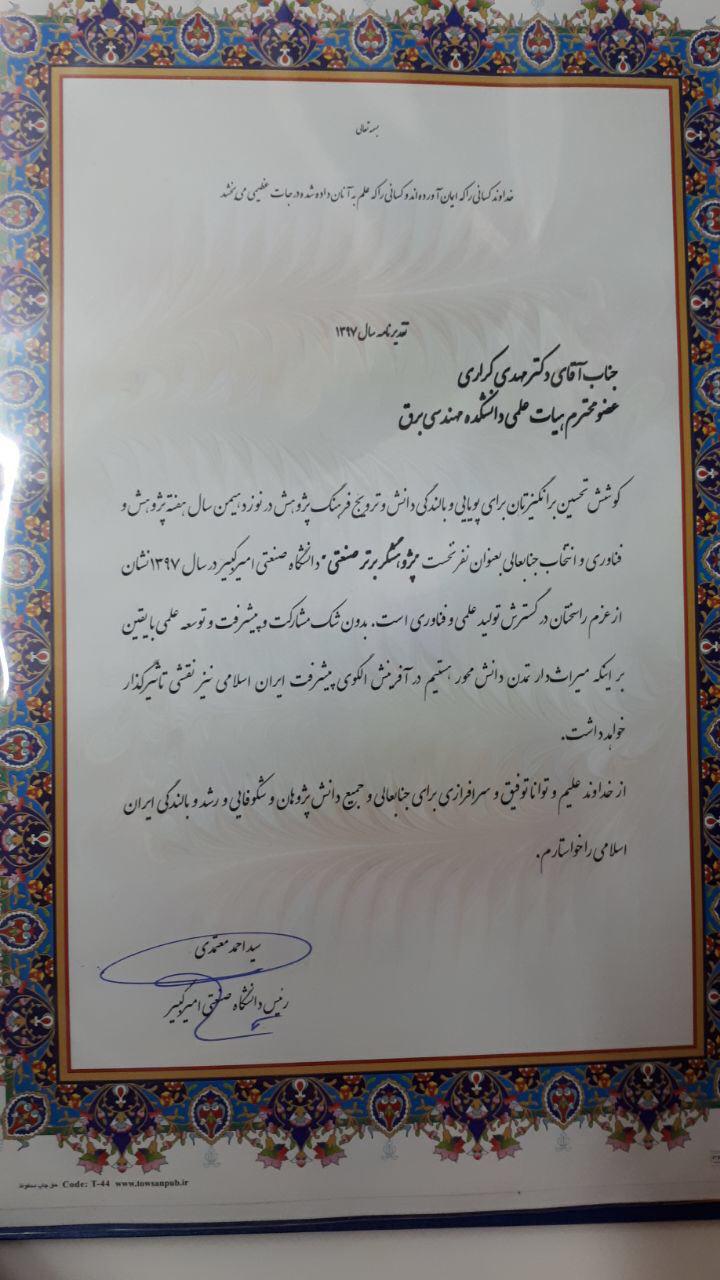 بسمه تعالی
خداوند کسانی را که ایمان آورده اند و کسانی را که علم به آنان داده شده درجات عظیمی می بخشد
تقدیرنامه سال ۱۳۹۷
جناب آقای دکتر مهدی کراری
عضو محترم هیات علمی دانشکده مهندسی برق
کوشش تحسین برانگیزتان برای پویایی و بالندگی دانش و ترویج فرهنگ پژوهش در نوزدهمین سال هفته پژوهش و
فناوری و انتخاب جنابعالی بعنوان نفر نخست "پژوهشگر برتر صنعتی" دانشگاه صنعتی امیرکبیر در سال ۱۳۹۷ نشان
از عزم راسختان در گسترش تولید علمی و فناوری است. بدون شک مشارکت و پیشرفت و توسعه علمی با یقین
بر اینکه میراث‌دار تمدن دانش محور هستیم در آفرینش الگوی پیشرفت ایران اسلامی نیز نقشی تأثیرگذار
خواهد داشت.
از خداوند علیم و توانا توفیق و سرافرازی برای جنابعالی و جمیع دانش پژوهان و شکوفایی و رشد و بالندگی ایران
اسلامی را خواستارم.
سید احمد معتمدی
رئیس دانشگاه صنعتی امیرکبیر
حق چاپ محفوظ Code: T-44 www.towsanpub.ir